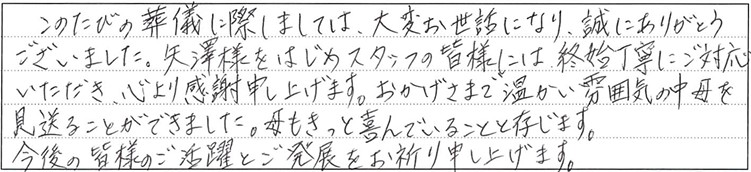 このたびの葬儀に際しましては、大変お世話になり、誠にありがとう
ございました。矢澤様をはじめスタッフの皆様には、終始丁寧にご対応
いただき、心より感謝申し上げます。おかげさまで、温かい雰囲気の中母を
見送ることができました。母もきっと喜んでいることと存じます。
今後の皆様のご活躍とご発展をお祈り申し上げます。